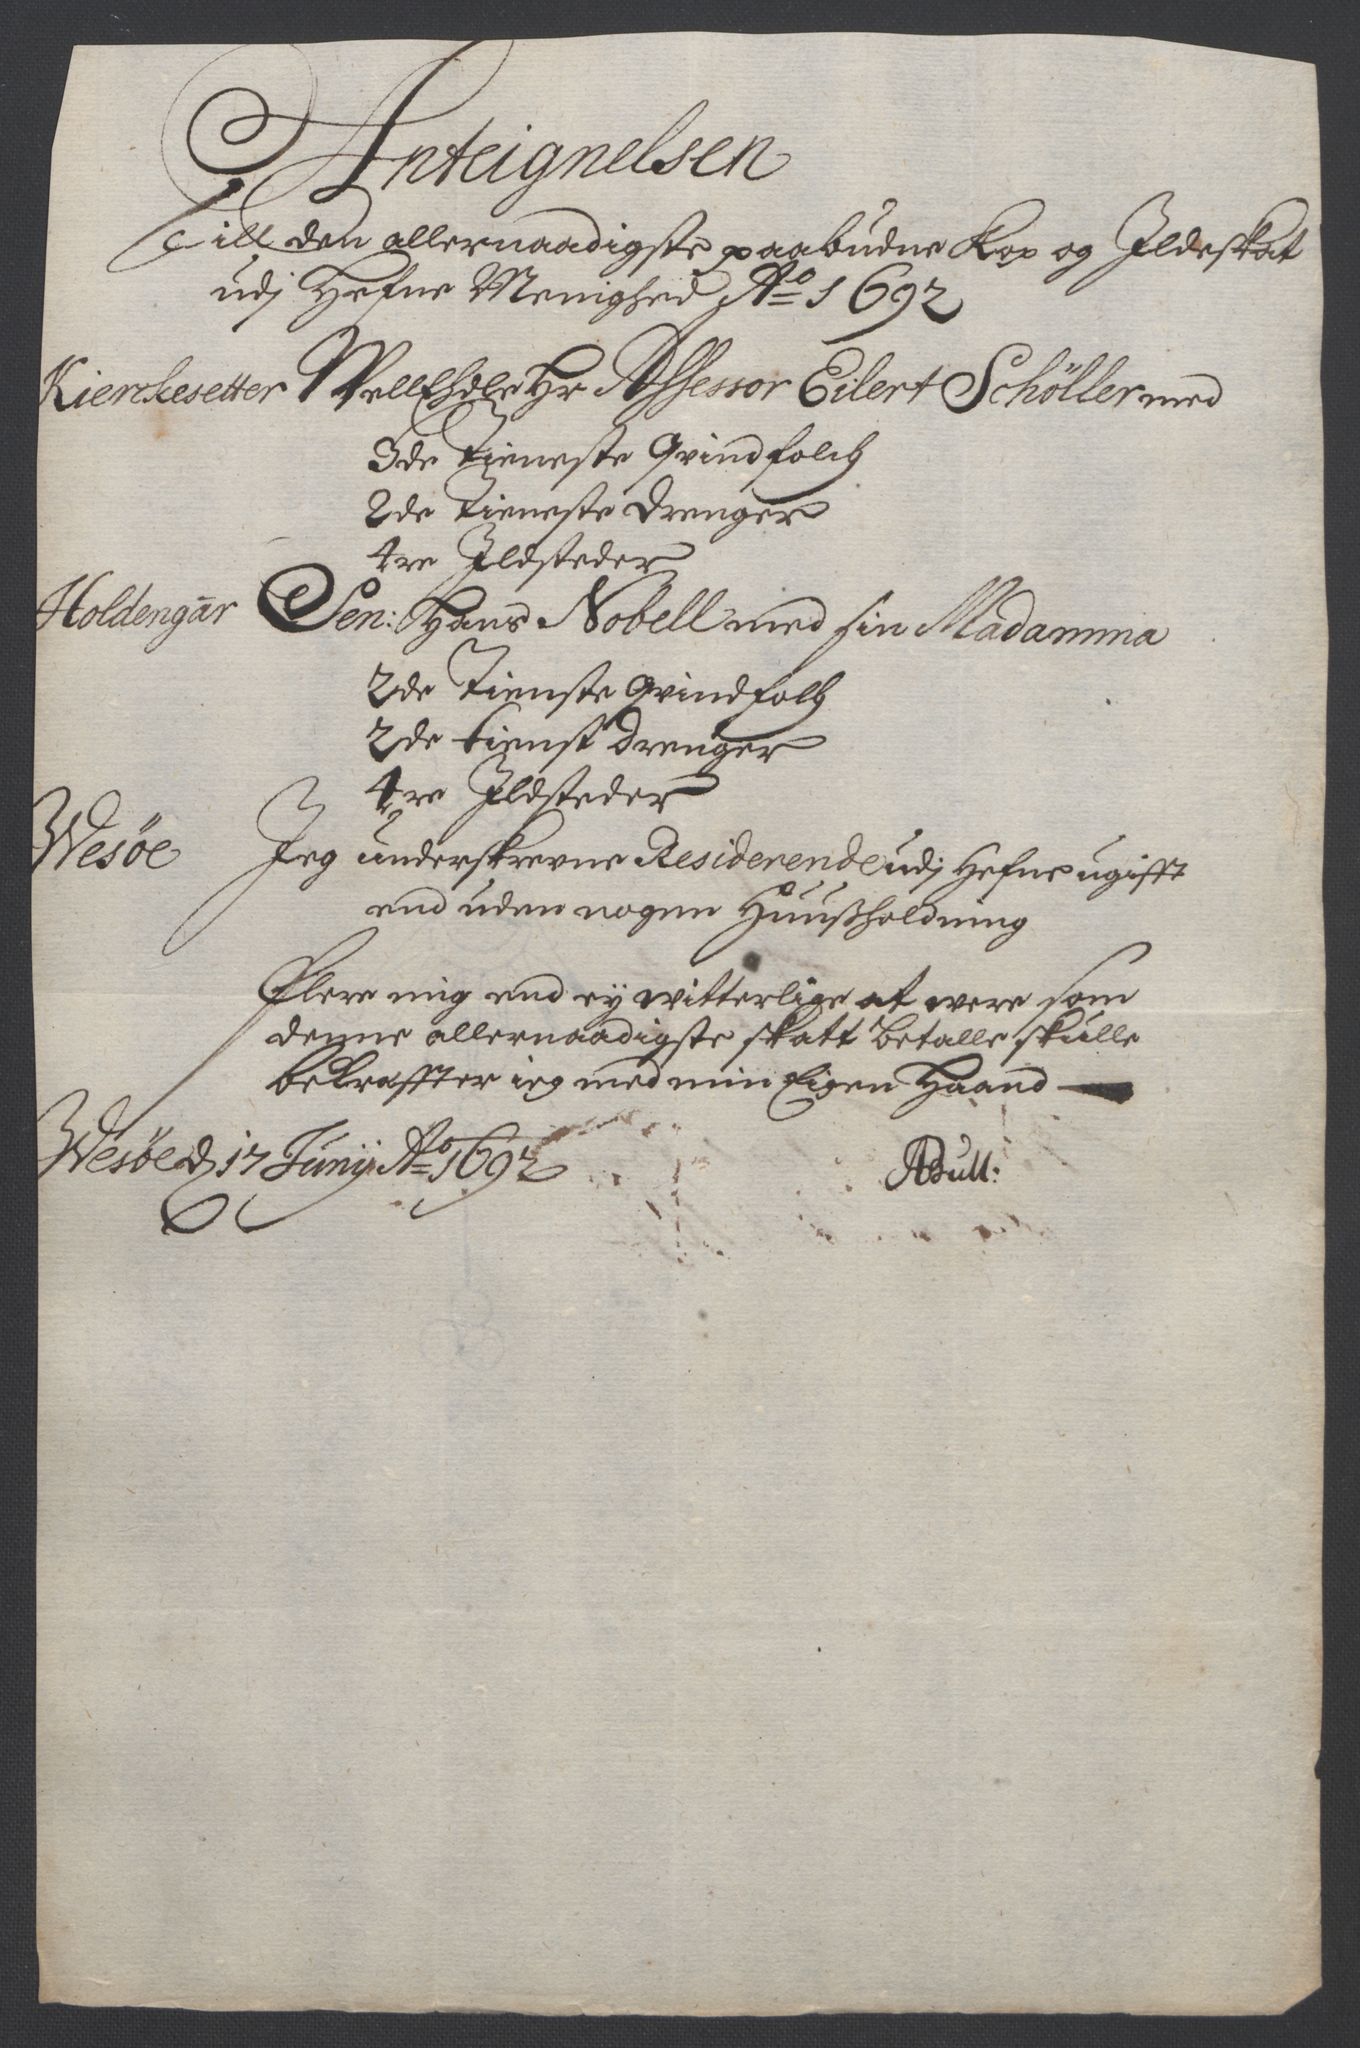 Anteignelsen
Till den allernaadigste paabudne Kop og Ildeskat
udj Hefne Menighed Ao 1692
Kierckesetter WellEhdle Hr Assessor Eilert Schöller med
3de Tieneste Qvindfolch
2de Tieneste Drenger
4re Ildsteder
Holdengår Sen: Hans Nobell med sin Madamma
2de Tienste Qvindfolch
2de tienst drenger
4re Ildsteder
Wesøe Jeg underskrevne Residerende udj Hefne ugifft
end uden nogen Huusholdning
Flere mig end ey witterlige at were som
denne allernaadigste skatt betalle skulle
bekraffter ieg med min Eigen Haand
Wesøe d 17 Junij Ao 1692 ABull: